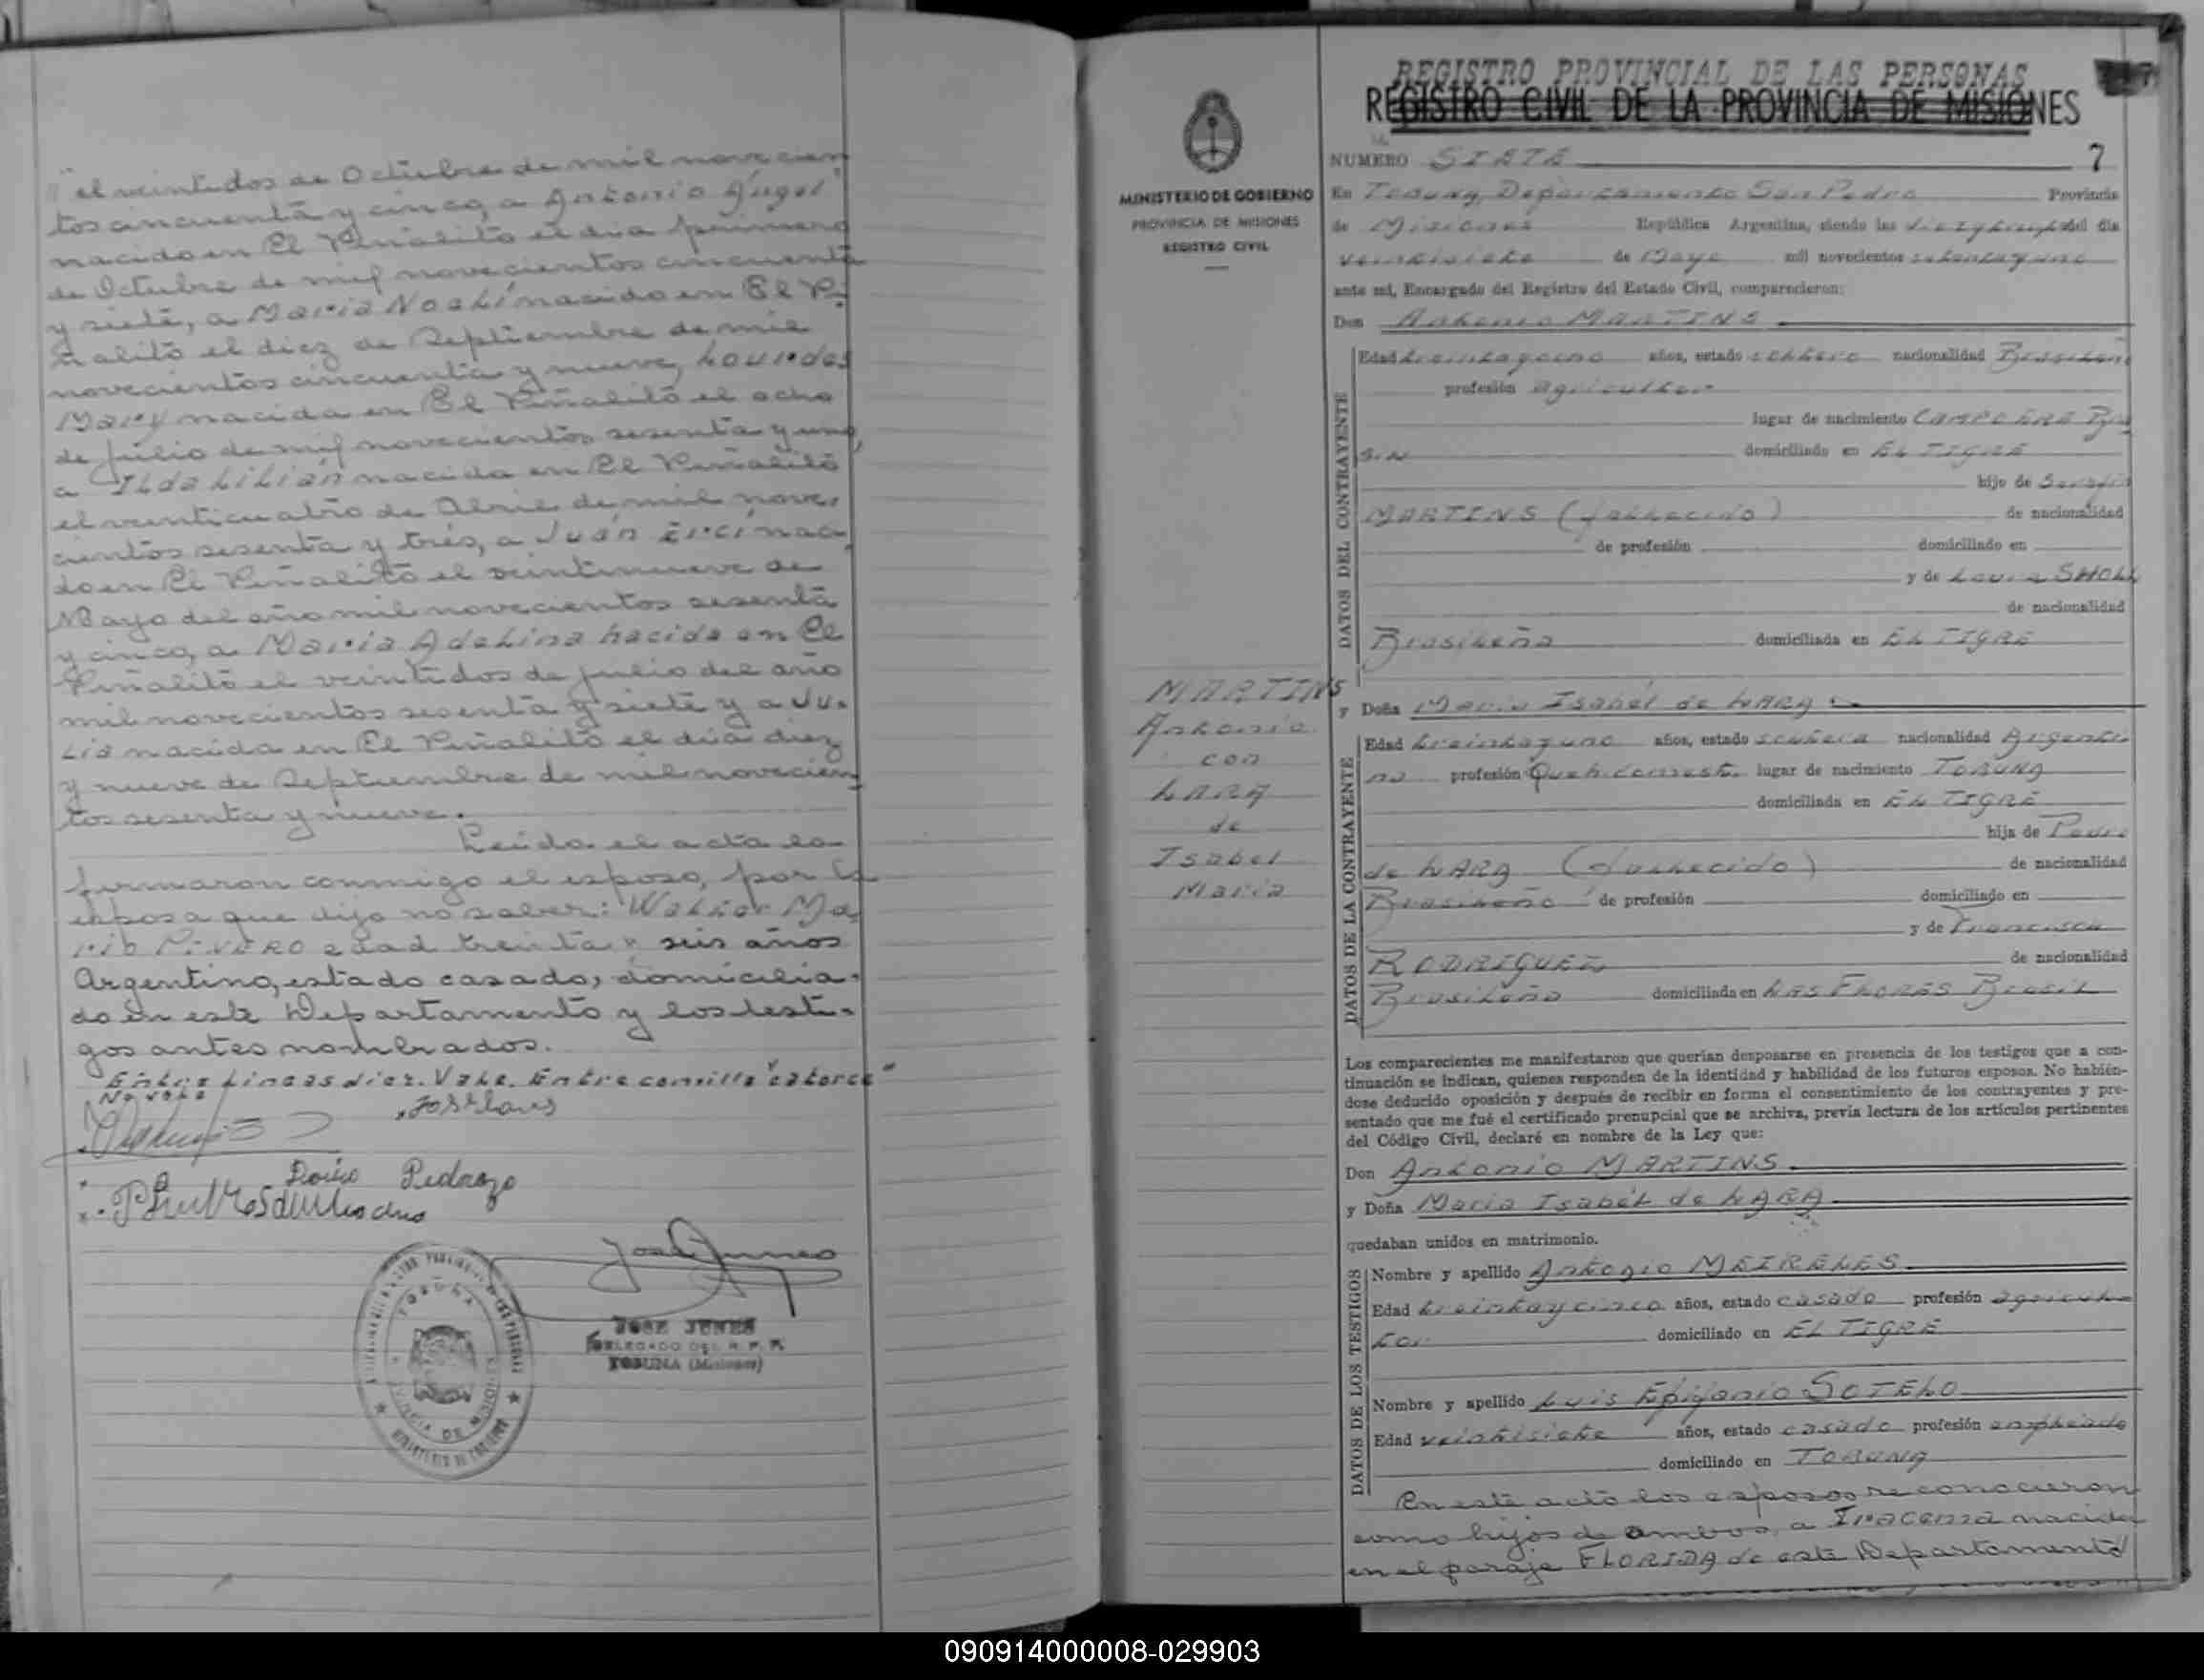 "el veintidos de Octubre de mil novecien
tos cincuenta y cinco, a Antonio Angel"
nacido en El Piñalito el dia primero
de Octubre de mil novecientos cincuenta
y siete, a Maria Noelí nacido en El Pi
ñalito el diez de Septiembre de mil
novecientos cincuenta y nueve, Lourdes
Mary nacida en El Piñalito el ocho
de Julio de mil novecientos sesenta y uno,
a Ilda Lilián nacida en El Piñalito
el veinticuatro de Abril de mil nove,
cientos sesenta y trés, a Juán naci
do en El Piñalito el veintinueve de
Mayo del año mil novecientos sesenta
y cinco, a Maria Adelina nacida en El
Piñalito el veintidos de julio del año
mil novecientos sesenta y siete y a Ju-
lia nacida en El Piñalito el dia diez
y nueve de Septiembre de mil novecien
tos sesenta y nueve.
Leida el acta la
firmaron conmigo el esposo, por la
esposa que dijo no saber: Walter Ma
rio edad treinta y seis años
Argentino, estado casado, domicilia-
do en este Departamento y los testi-
gos antes nombrados.
Entre lineas diez. Vale. Entre comilla "catorce"
No vale
Pedrozo
JOSE JUNES
DELEGADO DEL R. P. P.
TOBUNA (Misiones)
TOBUNA
PROVINCIA DE MISIONES
MINISTERIO DE GOBIERNO
PROVINCIA DE MISIONES
REGISTRO CIVIL
MARTINS
Antonio
con
LARA
de
Isabel
Maria
REGISTRO PROVINCIAL DE LAS PERSONAS
REGISTRO CIVIL DE LA PROVINCIA DE MISIONES
NUMERO SIETE 7
En Tobuna, Departamento San Pedro Provincia
de Misiones República Argentina, siendo las del día
veintisiete de Mayo mil novecientos setentayuno
ante mí, Encargado del Registro del Estado Civil, comparecieron:
Don Antonio MARTINS
DATOS DEL CONTRAYENTE
Edad treintayuno años, estado soltero nacionalidad Brasileño
profesión agricultor
lugar de nacimiento CAMPO ERÉ Bra
sil domiciliado en EL TIGRE
hijo de Serafin
MARTINS (fallecido) de nacionalidad
de profesión domiciliado en
y de
de nacionalidad
Brasileña domiciliada en EL TIGRE
y Doña Maria Isabél de LARA
DATOS DE LA CONTRAYENTE
Edad treintayuno años, estado soltera nacionalidad Argenti
na profesión Queh. domest. lugar de nacimiento TOBUNA
domiciliada en EL TIGRE
hija de Pedro
de LARA (fallecido) de nacionalidad
Brasileño de profesión domiciliado en
y de Francisca
RODRIGUEZ de nacionalidad
Brasileña domiciliada en LAS FLORES Brasil
Los comparecientes me manifestaron que querían desposarse en presencia de los testigos que a con-
tinuación se indican, quienes responden de la identidad y habilidad de los futuros esposos. No habién-
dose deducido oposición y después de recibir en forma el consentimiento de los contrayentes y pre-
sentado que me fué el certificado prenupcial que se archiva, previa lectura de los artículos pertinentes
del Código Civil, declaré en nombre de la Ley que:
Don Antonio MARTINS
y Doña Maria Isabél de LARA
quedaban unidos en matrimonio.
DATOS DE LOS TESTIGOS
Nombre y apellido Antonio MEIRELES
Edad treintaycinco años, estado casado profesión agricul
tor domiciliado en EL TIGRE
Nombre y apellido Luis Epifanio SOTELO
Edad veintisiete años, estado casado profesión empleado
domiciliado en TOBUNA
En este acto los esposos reconocieron
como hijos de ambos, a Iracema nacida
en el paraje FLORIDA de este Departamento
090914000008-029903